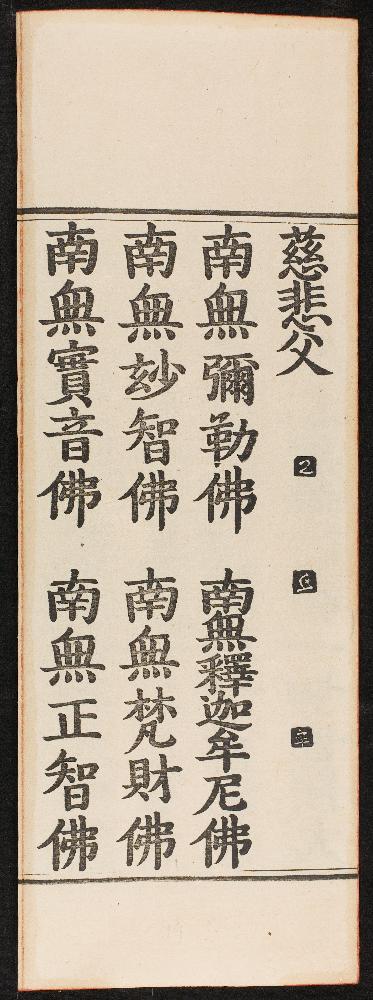 慈悲父
南無彌勒佛 南無釋迦牟尼佛
南無玅智佛 南無梵財佛
南無實音佛 南無正智佛